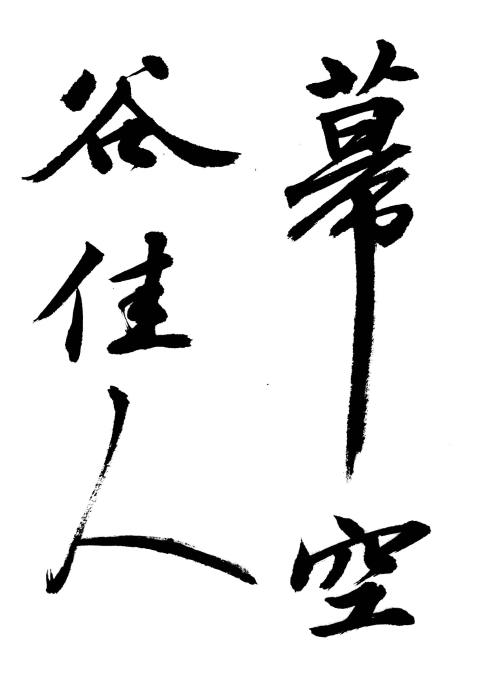 幕空
谷佳人